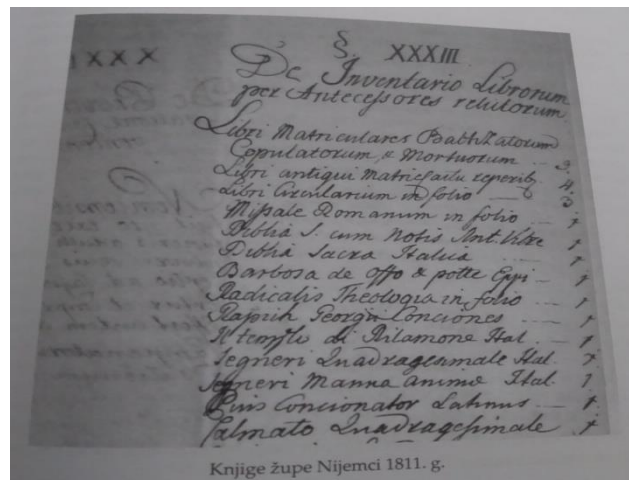 XXX
§. XXXIII
De Inventario Librorum
per Antecessores relictorum
Libri Matriculares Baptizatorum
Copulatorum, & Mortuorum 3.
Libri antiqui 4.
Libri Circularium in folio 3
Missale Romanum in folio 1
Biblia S. cum Notis Ant. Vitre 1
Biblia Sacra Italica 1
Barbosa de offo & potte Eppi 1
Radicalis Theologia in folio 1
Rapich Georgii Conciones 1
Il tempio di Hal. 1
Segneri Quadragesimale Ital. 1
Segneri Manna anime Ital. 1
Concionator Latinus 1
Calmato Quadragesimale 1
Knjige župe Nijemci 1811. g.